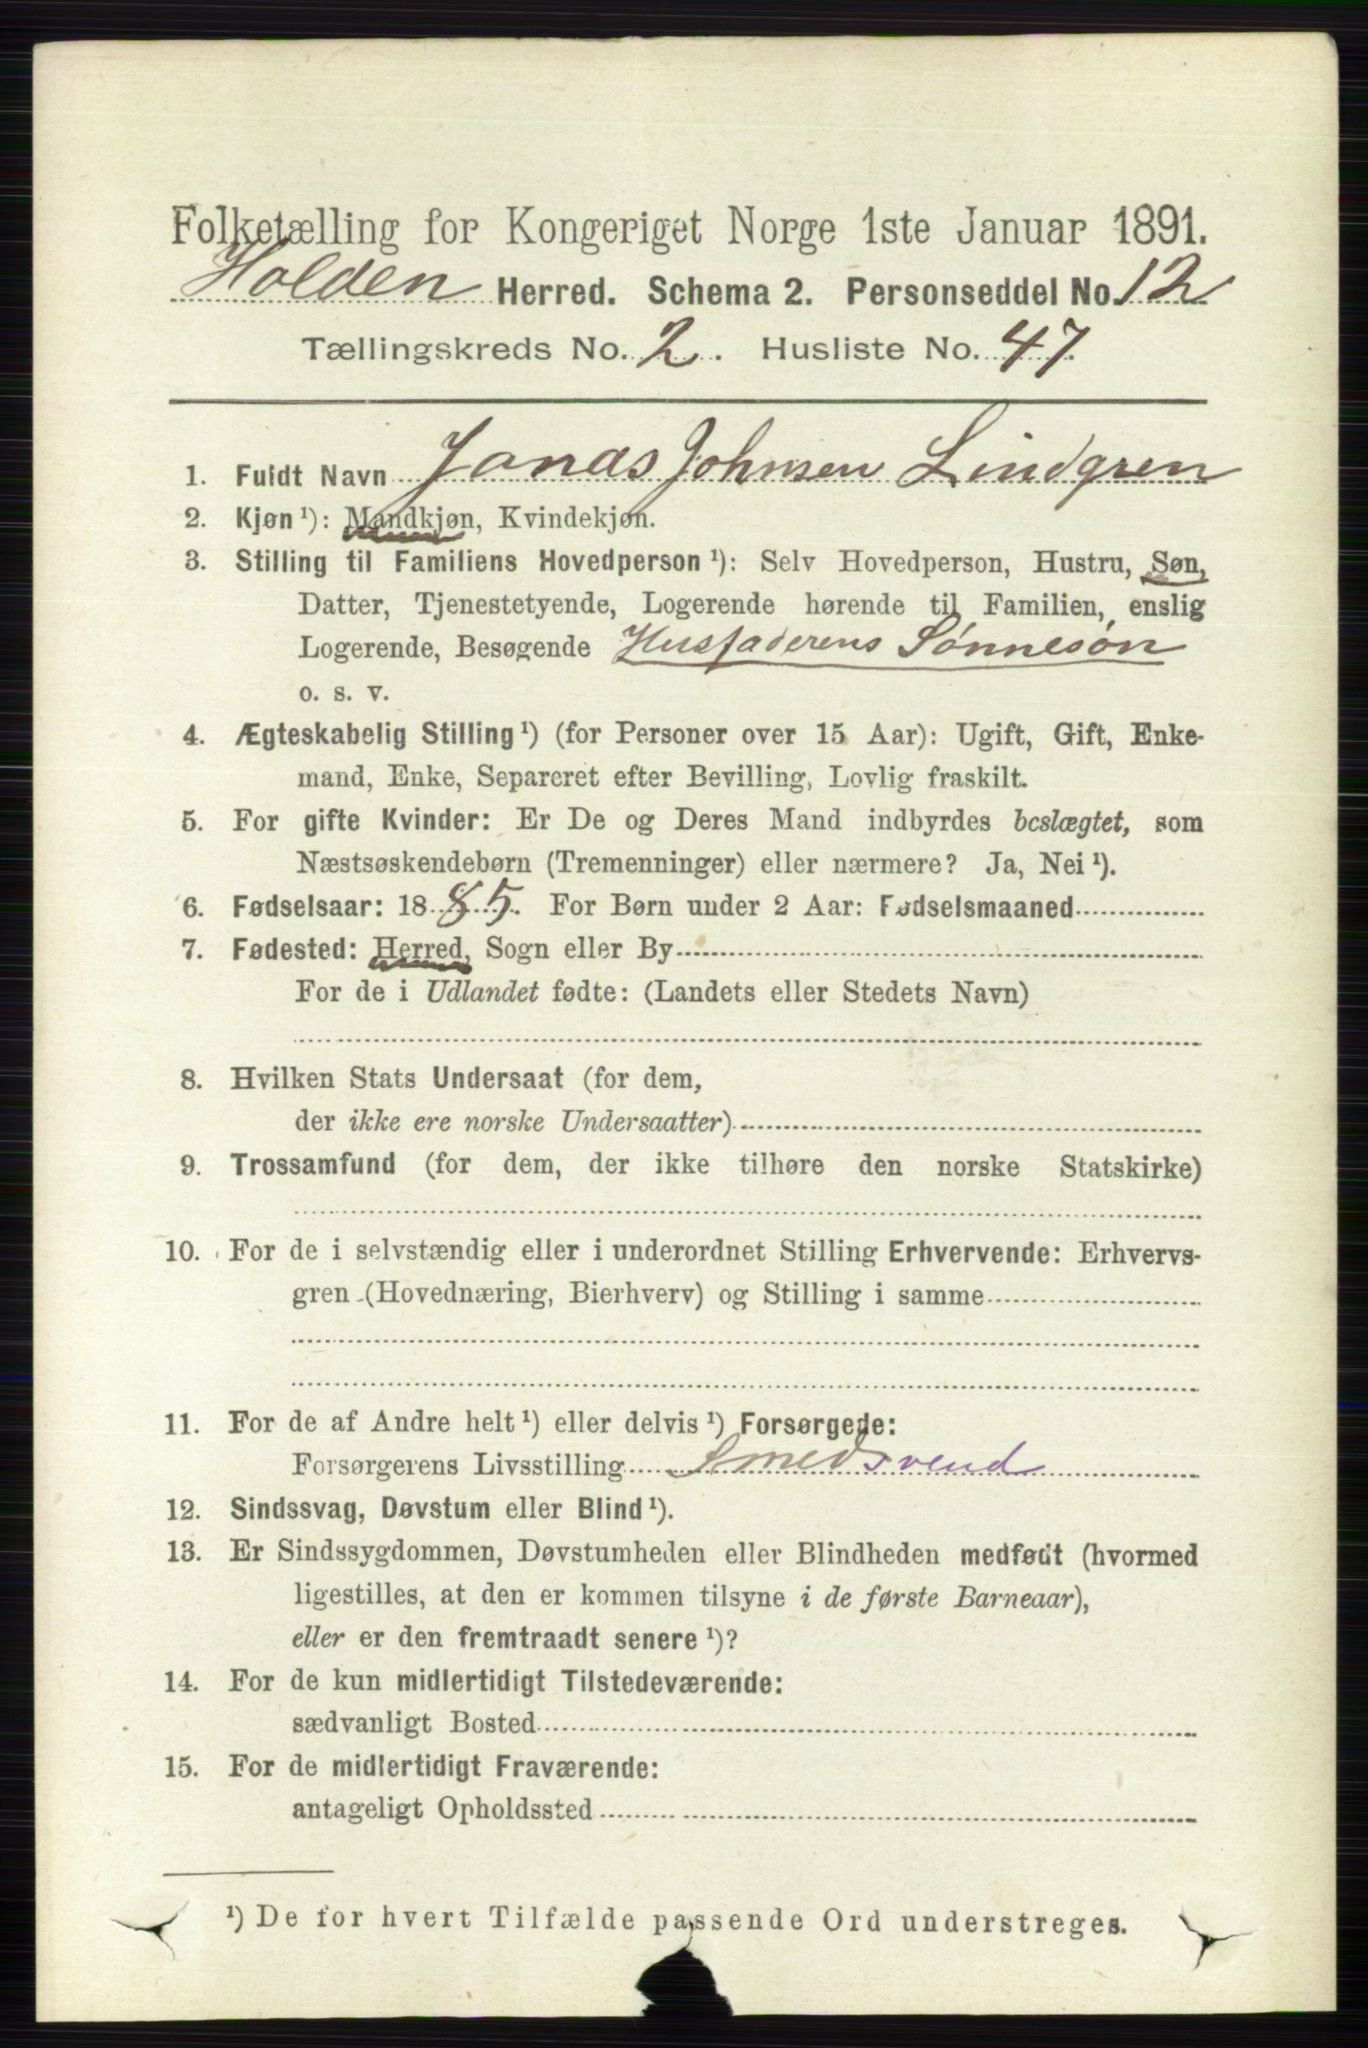 Folketælling for Kongeriget Norge 1ste Januar 1891.
Holden Herred. Schema 2. Personseddel No. 12
Tællingskreds No. 2. Husliste No. 47.
1. Fuldt Navn Jonas Johnsen Lindgren
2. Kjøn ¹): Mandkjøn, Kvindekjøn.
3. Stilling til Familiens Hovedperson ¹): Selv Hovedperson, Hustru, Søn,
Datter, Tjenestetyende, Logerende hørende til Familien, enslig
Logerende, Besøgende Husfaderens Sønnesøn
o. s. v.
4. Ægteskabelig Stilling ¹) (for Personer over 15 Aar): Ugift, Gift, Enke-
mand, Enke, Separeret efter Bevilling, Lovlig fraskilt.
5. For gifte Kvinder: Er De og Deres Mand indbyrdes beslægtet, som
Næstsøskendebørn (Tremenninger) eller nærmere? Ja, Nei ¹).
6. Fødselsaar: 1885. For Børn under 2 Aar: Fødselsmaaned
7. Fødested: Herred, Sogn eller By
For de i Udlandet fødte: (Landets eller Stedets Navn)
8. Hvilken Stats Undersaat (for dem,
der ikke ere norske Undersaatter)
9. Trossamfund (for dem, der ikke tilhøre den norske Statskirke)
10. For de i selvstændig eller i underordnet Stilling Erhvervende: Erhvervs-
gren (Hovednæring, Bierhverv) og Stilling i samme
11. For de af Andre helt ¹) eller delvis ¹) Forsørgede:
Forsørgerens Livsstilling Smedsvend
12. Sindssvag, Døvstum eller Blind ¹).
13. Er Sindssygdommen, Døvstumheden eller Blindheden medfødt (hvormed
ligestilles, at den er kommen tilsyne i de første Barneaar),
eller er den fremtraadt senere ¹)?
14. For de kun midlertidigt Tilstedeværende:
sædvanligt Bosted
15. For de midlertidigt Fraværende:
antageligt Opholdssted
¹) De for hvert Tilfælde passende Ord understreges.